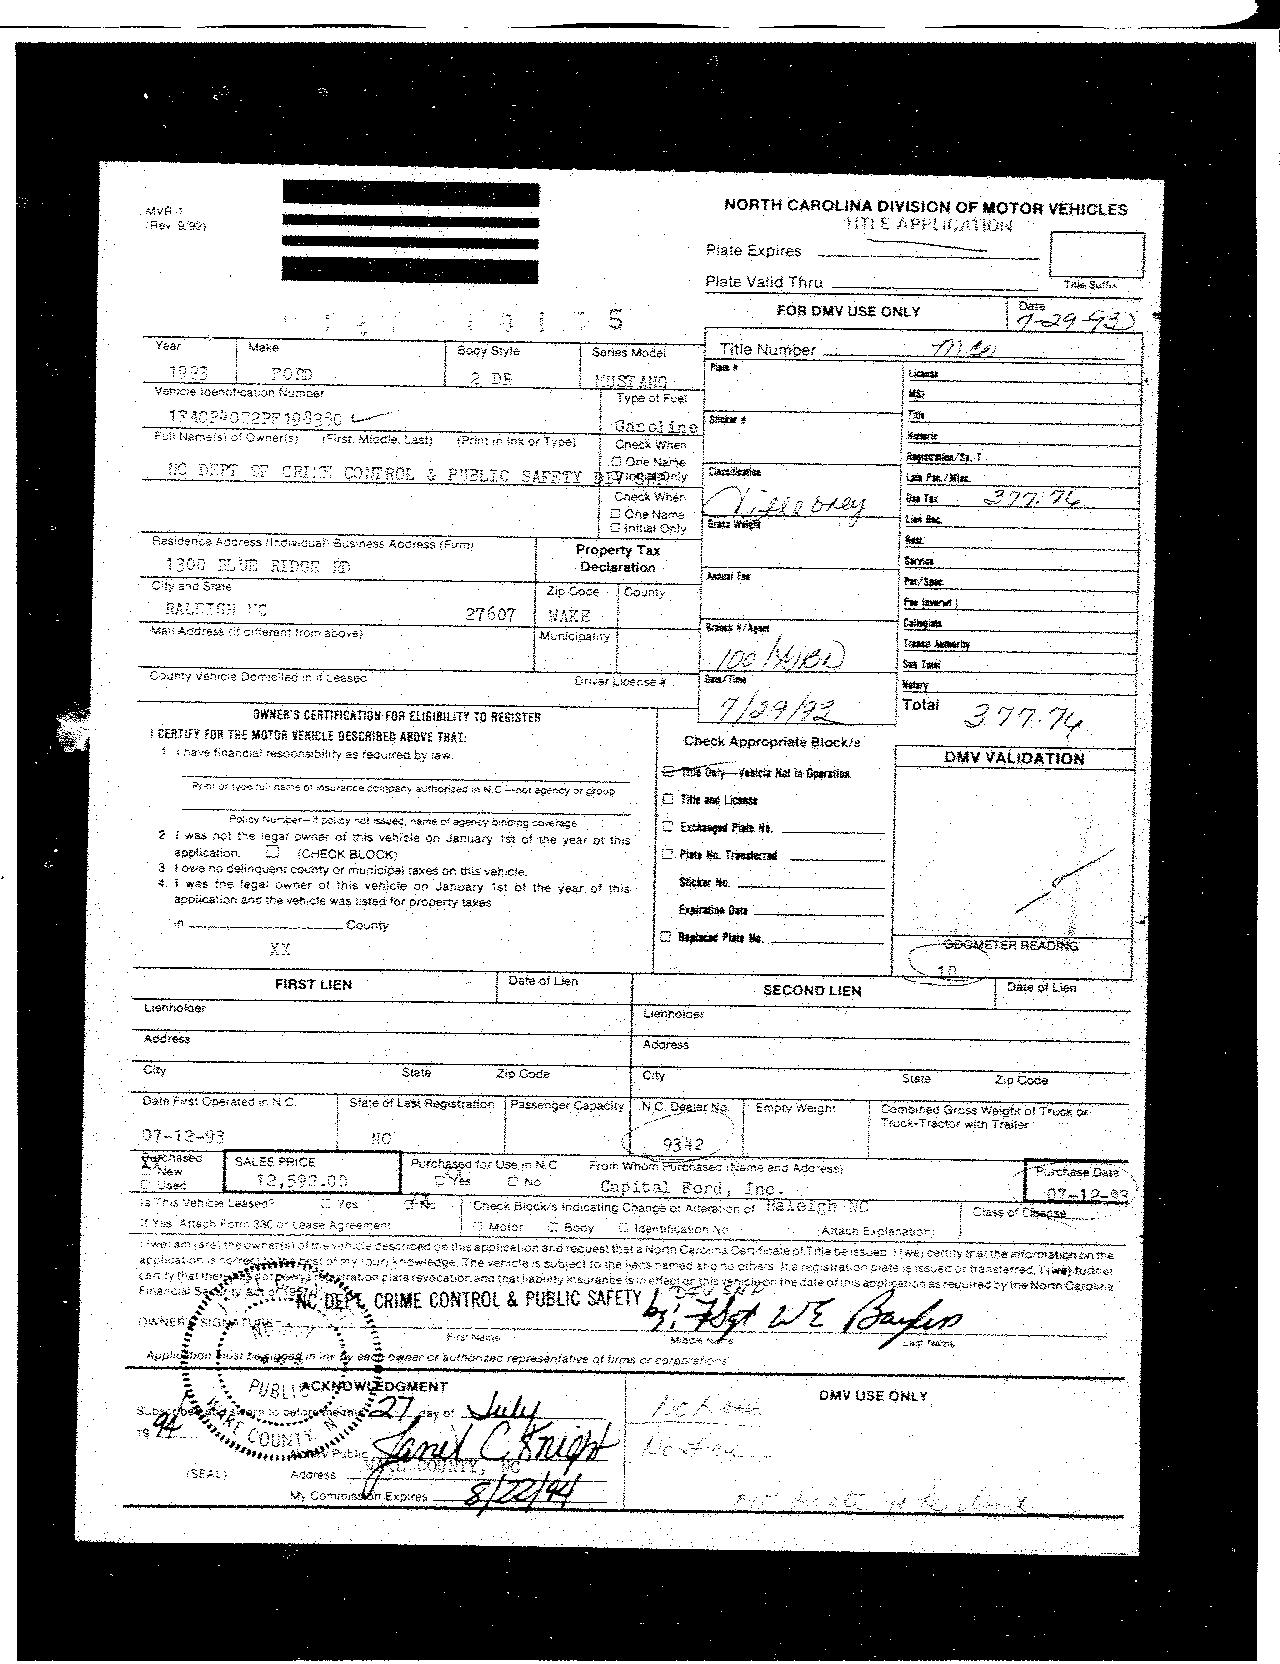 MVR-1
(Rev. 9/92)
NORTH CAROLINA DIVISION OF MOTOR VEHICLES
TITLE APPLICATION
Plate Expires
Plate Valid Thru
Title Suffix
FOR DMV USE ONLY
Date
7-29-93
Title Number
Year
Make
Body Style
Series Model
1993
FORD
2 DR
MUSTANG
Vehicle Identification Number
Type of Fuel
Gasoline
Full Name(s) of Owner(s) (First, Middle, Last) (Print in Ink or Type)
Check When
One Name
Initial Only
NC DEPT OF CRIME CONTROL & PUBLIC SAFETY
Check When
One Name
Initial Only
Residence Address (Individual) Business Address (Firm)
1300 BLUE RIDGE RD
Property Tax
Declaration
City and State
Zip Code
County
RALEIGH NC
27607
WAKE
Mail Address (if different from above)
Municipality
County Vehicle Domiciled in if Leased
Driver License #
Plate #
Sticker #
Classification
Gross Weight
Annual Fee
Branch #/Agent
Date/Time
7/29/93
License
MSI
Title
Use Tax
377.74
Lien Rec.
Rest.
Service
Collegiate
Transit Authority
Sub Total
Notary
Total
377.74
OWNER'S CERTIFICATION FOR ELIGIBILITY TO REGISTER
I CERTIFY FOR THE MOTOR VEHICLE DESCRIBED ABOVE THAT:
1. I have financial responsibility as required by law.
Print or type full name of insurance company authorized in N.C.—not agency or group
Policy Number—if policy not issued, name of agency binding coverage
2. I was not the legal owner of this vehicle on January 1st of the year of this
application. (CHECK BLOCK)
3. I owe no delinquent county or municipal taxes on this vehicle.
4. I was the legal owner of this vehicle on January 1st of the year of this
application and the vehicle was listed for property taxes
in County
XX
Check Appropriate Block/s
Title Only—Vehicle Not in Operation
Title and License
Exchanged Plate No.
Plate No. Transferred
Sticker No.
Expiration Date
Replaced Plate No.
DMV VALIDATION
ODOMETER READING
10
FIRST LIEN
Date of Lien
SECOND LIEN
Date of Lien
Lienholder
Lienholder
Address
Address
City State Zip Code
City State Zip Code
Date First Operated in N.C.
State of Last Registration
Passenger Capacity
N.C. Dealer No.
Empty Weight
Combined Gross Weight of Truck or
Truck-Tractor with Trailer
07-12-93
NC
9342
Purchased
New
Used
SALES PRICE
12,592.00
Purchased for Use in N.C.
Yes No
From Whom Purchased (Name and Address)
Capital Ford, Inc.
Raleigh NC
Purchase Date
07-12-93
Is This Vehicle Leased? Yes No
If Yes, Attach Form 330 or Lease Agreement
Check Block/s Indicating Change or Alteration of
Motor Body Identification No. Attach Explanation
Class of License
I (we) am (are) the owner(s) of the vehicle described on this application and request that a North Carolina Certificate of Title be issued. I (we) certify that the information on the
application is correct to the best of my (our) knowledge. The vehicle is subject to the liens named and no others. If a registration plate is issued or transferred, I (we) further
certify that there registration plate revocation and that liability insurance is in effect on this vehicle on the date of this application as required by the North Carolina
Financial
NC DEPT. CRIME CONTROL & PUBLIC SAFETY
OWNER'S SIGNATURE
First Name
Middle Name
Last Name
Application must be signed in ink by each owner or authorized representative of firms or corporations
ACKNOWLEDGMENT
Subscribed and sworn to before me this 27 day of July
19 94
PUBLIC
WAKE COUNTY
Notary Public Janet C Knight
(SEAL)
Address WAKE COUNTY, NC
My Commission Expires 8/22/94
DMV USE ONLY